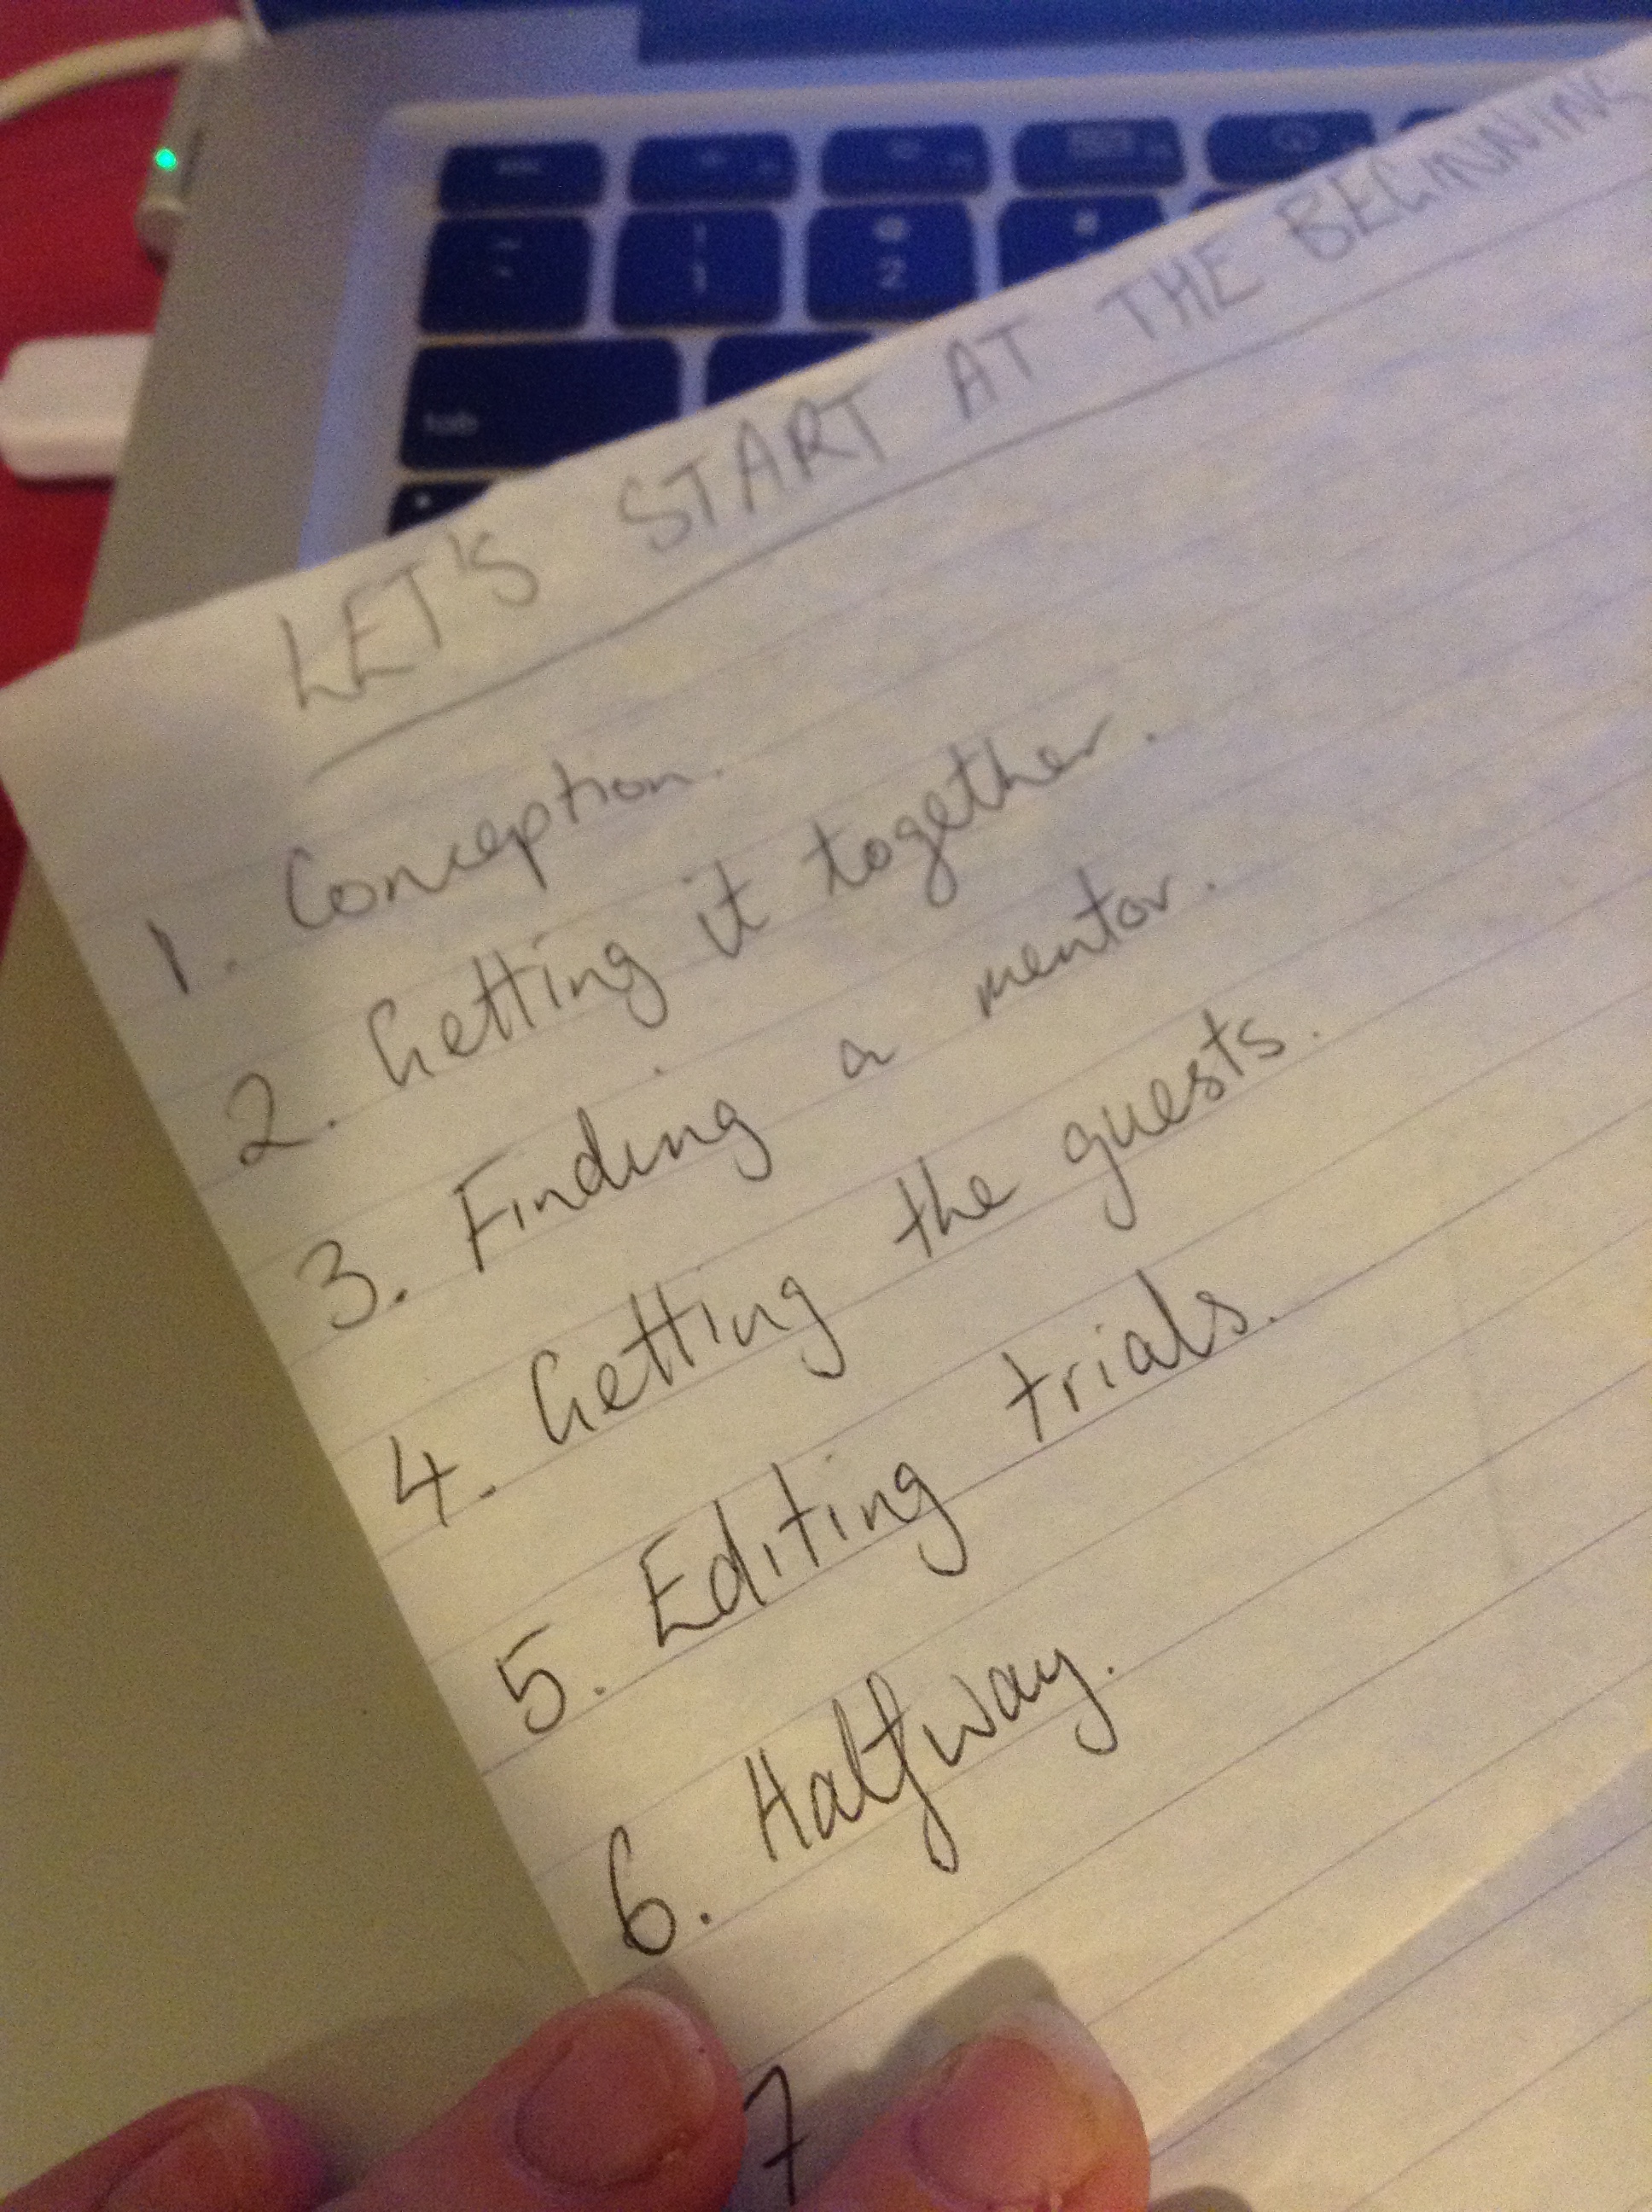 tab
1
2
LET'S START AT THE BEGINNING
1. Conception.
2. Getting it together.
3. Finding a mentor.
4. Getting the guests.
5. Editing trials.
6. Halfway.
7